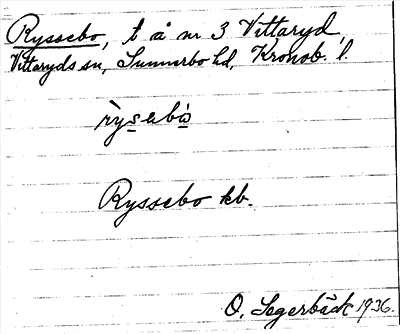 Ryssebo, t å nr 3 Vittaryd,
Vittaryds sn, Sunnerbo hd, Kronob. l.
Ryssebo kb.
O. Segerbäck 1936.